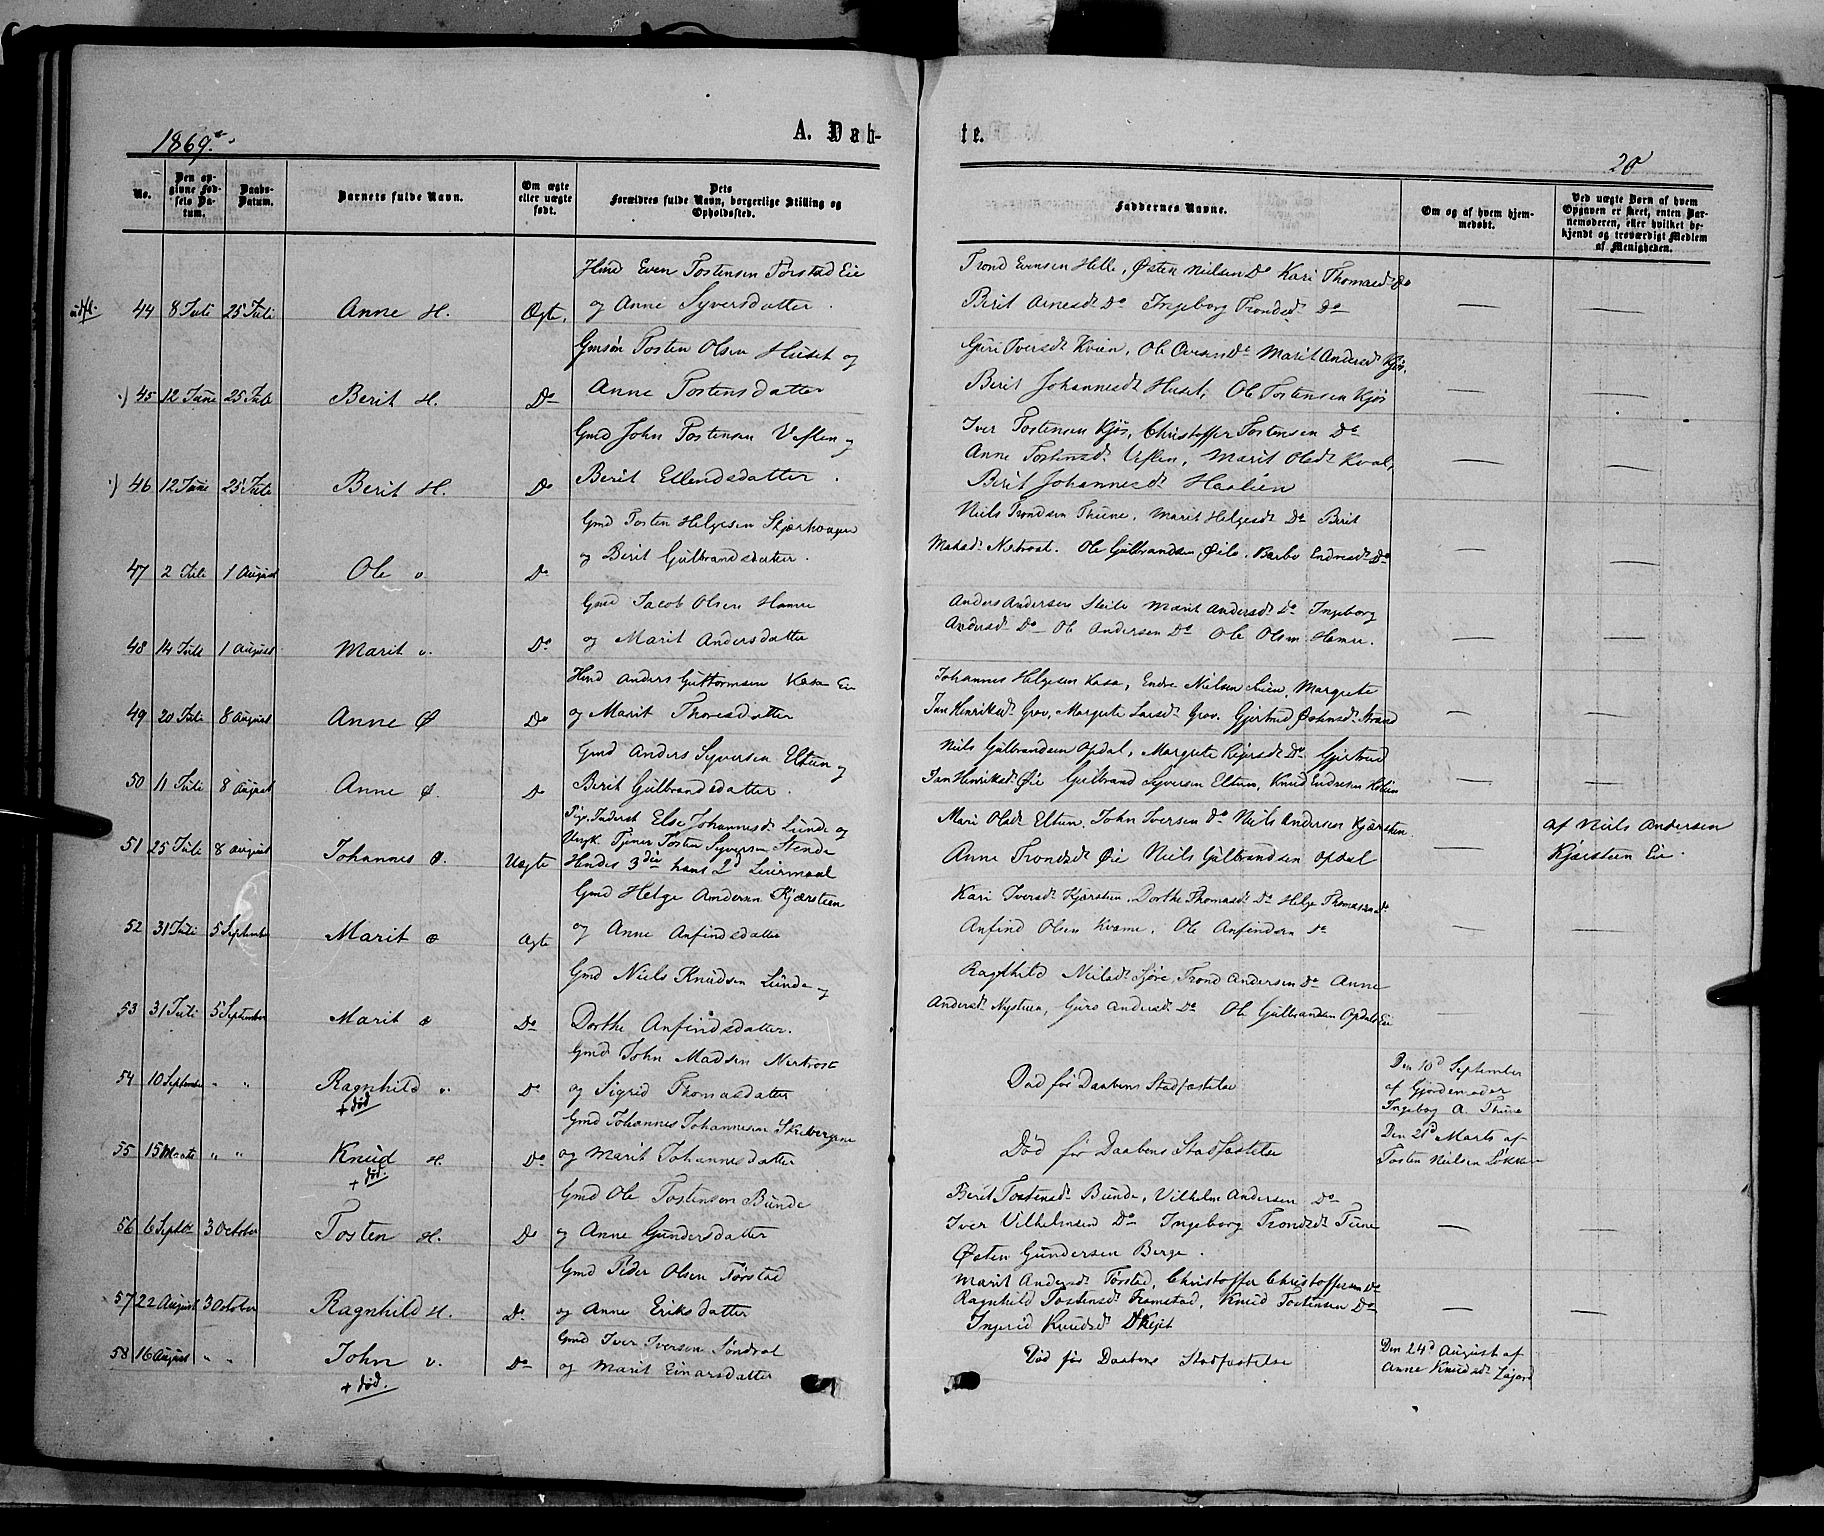 1869.
A. Døb-
te.
20
No.
Den op-
givne Fød-
sels Da-
tum.
Daabs-
Datum.
Barnets fulde Navn.
Om ægte
eller uægte
født.
Dets
Forældres fulde Navn, borgerlige Stilling og
Opholdssted.
Faddernes Navne.
Om og af hvem hjem-
medøbt.
Ved uægte Børn af hvem
Opgaven er skeet, enten Bar-
nemoderen, eller hvilket be-
kjendt og troværdigt Medlem
af Menigheden.
Hmd Even Tostensen Førstad Eie
Trond Evensen Helle, Østen Nielsen Do Kari Thomasdr Do
udfl.
44 8 Juli 25 Juli Anne H. Ægte. og Anne Syversdatter.
Berit Arnesdr Do Ingeborg Trondsdr Do — —
Gmsøn Tosten Olsen Huset og
Guri Iversdr Kvien, Ole Ovesen Do Marit Andersdr Kjøs
45 12 Juni 25 Juli Berit H. Do Anne Tostensdatter
Berit Johannesdr Huset, Ole Tostensen Kjøs — —
Gmd John Tostensen Veflen og
Iver Tostensen Kjøs, Christoffer Tostensen Do
Anne Tostensdr Veflen, Marit Olsdr Kvale — —
46 12 Juni 25 Juli Berit H. Do Berit Ellendsdatter.
Berit Johannesdr Haalien
Gmd Tosten Helgesen Skjærhougen
Niels Trondsen Thune, Marit Helgesdr Do Berit
og Berit Gulbrandsdatter.
Nertrost. Ole Gulbrandsen Øilo, Barbo Endresdr Do —
47 2 Juli 1 August Ole v. Do —
Gmd Jacob Olsen Hamre
Anders Andersen Steile Marit Andersdr Do Ingeborg
Andersdr Do Ole Andersen Do Ole Olsen Hamre. — —
48 14 Juli 1 August Marit v. Do og Marit Andersdatter
Hmd Anders Guttormsen Kasa Eie
Johannes Helgesen Kasa, Endre Nielsen Lien, Margrete
49 20 Juli 8 August Anne Ø Do og Marit Thoresdatter
Jan Henriksdr Grov, Margrete Larsdr Grov. Gjertrud Østensdr Strand — —
Gmd Anders Syversen Eltun og
Niels Gulbrandsen Opdal, Margrete Do Gjertrud
50 11 Juli 8 August Anne Ø. Do Berit Gulbrandsdatter.
Jan Henriksdr Øie Gulbrand Syversen Eltun, Knud Endresen — —
Pige, Inderst Else Johannesdr Lunde og
Ungk. Tjener Tosten Syversen Stende
Mari Olsdr Eltun, John Iversen Do Niels Andersen Kjærsten
af Niels Andersen
51 25 Juli 8 August Johannes Ø. Uægte Hendes 3die hans 2d Leiermaal
Anne Trondsdr Øie Niels Gulbrandsen Opdal —
Kjærsteen Eie.
Gmd Helge Andersen Kjærsteen
Kari Iversdr Kjærsten, Dorthe Thomasdr Do Helge Thomassen Do
52 31 Juli 5 September Marit ø Ægte og Anne Anfindsdatter
Anfind Olsen Kvame, Ole Anfindsen Do — —
Gmd Niels Knudsen Lunde og
Ragnhild Nielsdr Trond Andersen Do Anne
53 31 Juli 5 September Marit ø Do Dorthe Anfindsdatter.
Andersdr Nysteen, Guro Andersdr Do Ole Gulbrandsen Opdal Eie — —
Gmd John Madsen Nertrost
54 10 September " " Ragnhild v. Do og Sigrid Thomasdatter
+ død
Død før Daabens Stadfæstelse
Den 10d September
af Gjordemoder
Ingeborg A. Thune
Gmd Johannes Johannesen Skrebergene
55 15 Marts " " Knud H. Do og Marit Johannesdatter
+ død.
Død før Daabens Stadfæstelse
Den 21d Marts af
Tosten Nielsen Løkken
Gmd Ole Tostensen Bunde
Berit Tostensdr Bunde, Vilhelm Andersen Do
56 6 Septbr 3 October Tosten H. Do og Anne Gundersdatter
Iver Vilhelmsen Do Ingeborg Trondsdr Tune — —
Østen Gundersen Berge.
Gmd Peder Olsen Førstad
Marit Andersdr Førstad, Christoffer Christoffersen Do
57 22 August 3 October Ragnhild H. Do og Anne Eriksdatter
Ragnhild Tostensdr Framstad, Knud Tostensen Do — —
Ingerid Knudsdr
Gmd Iver Iversen Søndrol
58 16 August " " John v. Do og Marit Einarsdatter
+ død.
Død før Daabens Stadfæstelse
Den 24d August af
Anne Knudsdr